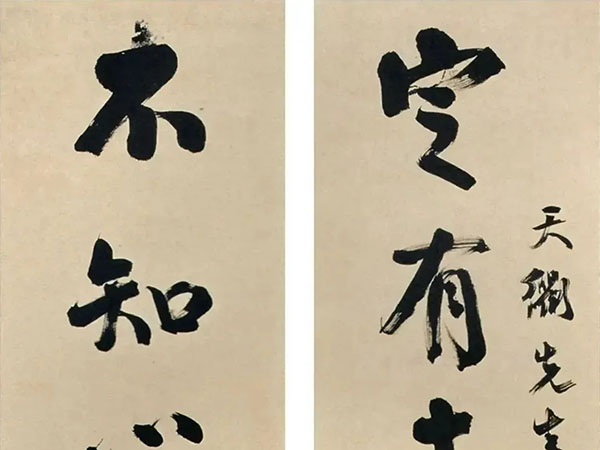 天
先生
定有
不知